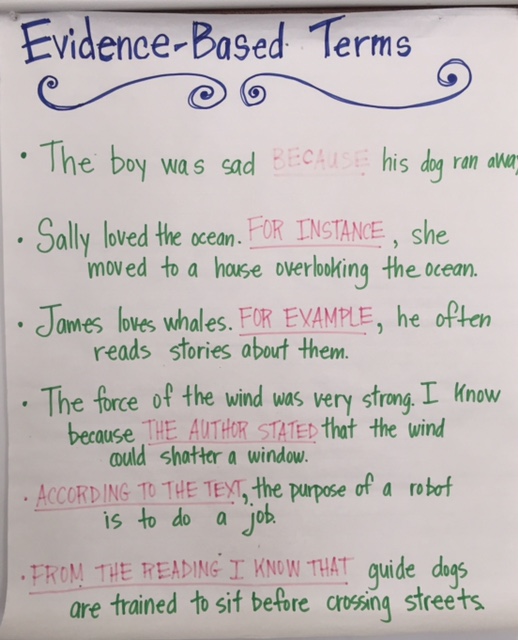 Evidence-Based Terms
• The boy was sad BECAUSE his dog ran away
• Sally loved the ocean. FOR INSTANCE, she
moved to a house overlooking the ocean.
• James loves whales. FOR EXAMPLE, he often
reads stories about them.
• The force of the wind was very strong. I know
because THE AUTHOR STATED that the wind
could shatter a window.
• ACCORDING TO THE TEXT, the purpose of a robot
is to do a job.
• FROM THE READING I KNOW THAT guide dogs
are trained to sit before crossing streets.